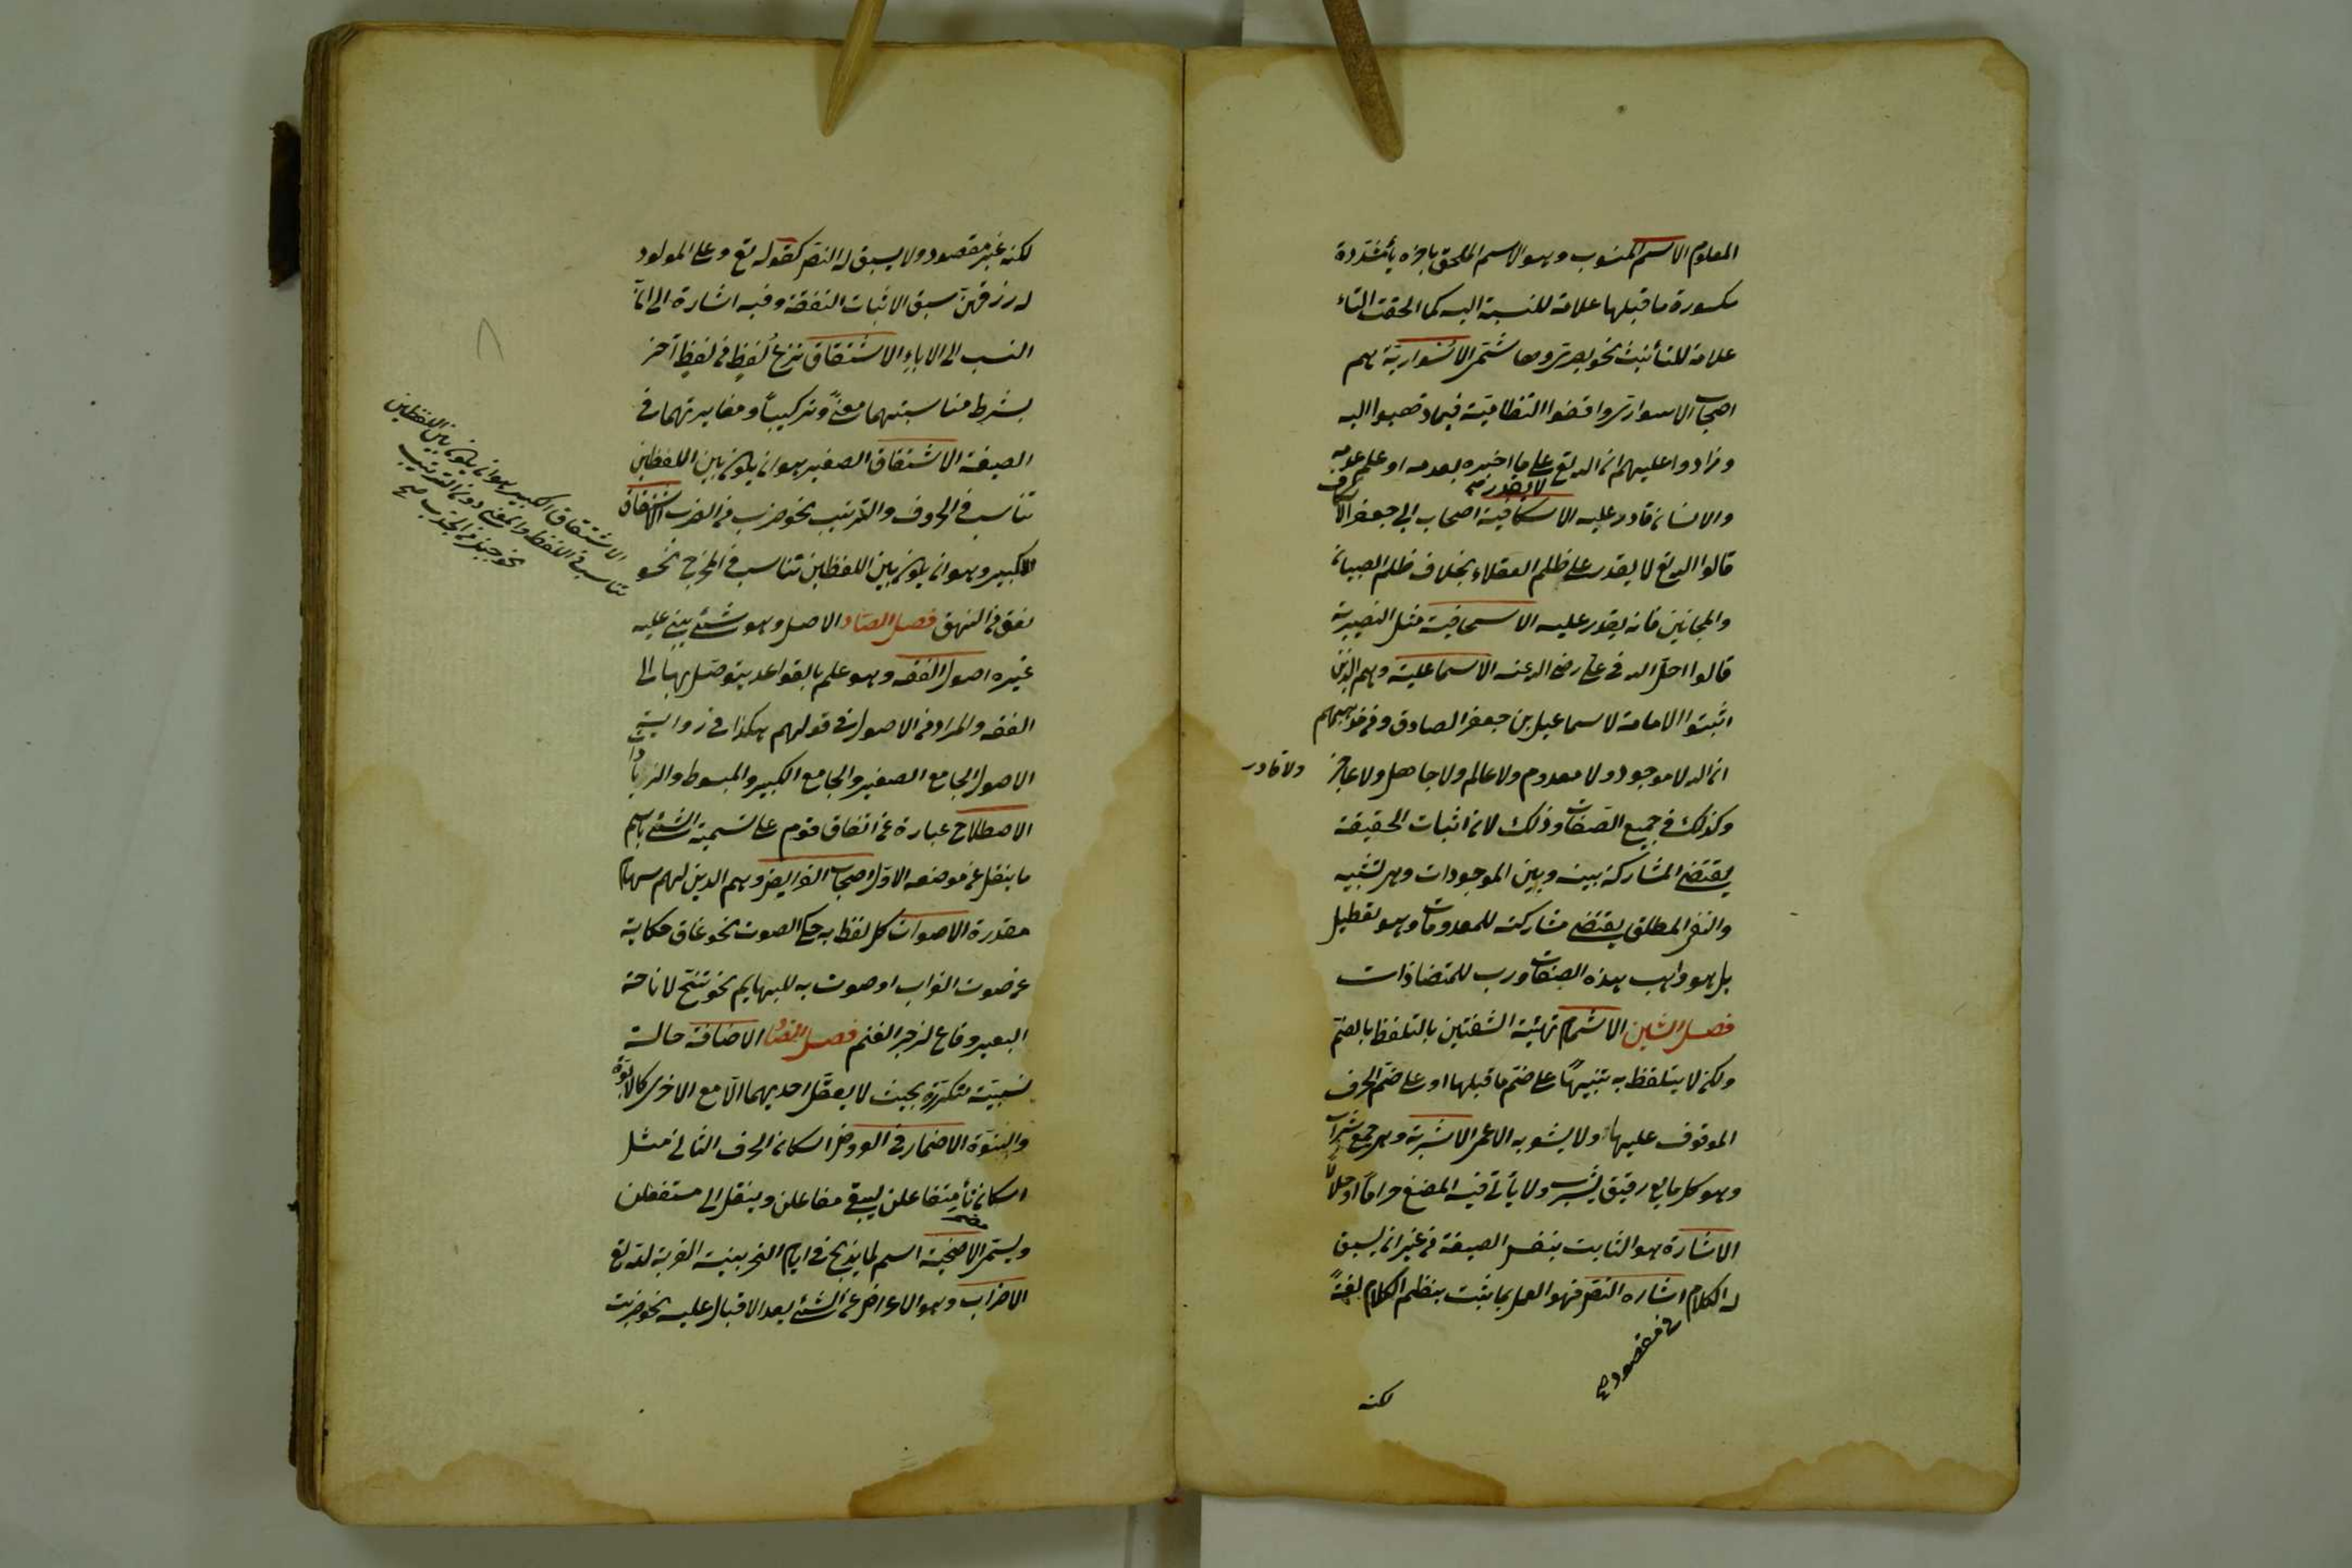 المعلوم الاسم المنسوب وهو الاسم الملحق باخره ياء مشددة
مكسورة ما قبلها علامة للنسبة اليه كما الحقت التاء
علامة للتأنيث نحو بصرى وهاشمى الاسوارية هم
اصحاب الاسوارى وافقوا النظامية فيما ذهبوا اليه
وزادوا عليهم ان الله تع لا يقدر صح على ما اخبره بعدمه او علم عدمه
والانسان قادر عليه الاسكافية اصحاب ابى جعفر الاسكاف
قالوا الله تع لا يقدر على ظلم العقلاء بخلاف ظلم الصبيان
والمجانين فانه يقدر عليه الاسحاقية مثل النصيرية
قالوا احل الله فى على رضى الله عنه الاسماعلية وهم الذين
اثبتوا الامامة لاسماعيل بن جعفر الصادق ومن مذهبهم
ان الله لا موجود ولا معدوم ولا عالم ولا جاهل ولا عاجز
ولا قادر
وكذلك فى جميع الصفات وذلك لان اثبات الحقيقة
يقتضى المشاركة بينه وبين الموجودات وهو تشبيه
والنفى المطلق يقتضى مشاركته للمعدومات وهو تعطيل
بل هو واهب هذه الصفات ورب للمتضادات
فصل الشين الاشمام تهيئة الشفتين بالتلفظ بالضم
ولكن لا يتلفظ به تنبيها على ضم ما قبلها او على ضم الحرف
الموقوف عليها ولا يشعر به الاعمى الاشربة وهى جمع شراب
وهو كل مايع رقيق يشرب ولا يأتى فيه المضغ حراما او حلالا
الاشارة هو الثابت بنفس الصيغة من غير ان يسبق
له الكلام اشارة النص فهو العمل بما يثبت بنظم الكلام لغة
غير مقصود صح
لكنه
لكنه غير مقصود ولا يسبق له النص كقوله تع وعلى المولود
له رزقهن سيق لاثبات النفقة وفيه اشارة الى ان
النسب الى الاباء الاشتقاق نزع لفظ من لفظ آخر
بشرط مناسبتهما معنى وتركيبا ومغايرتهما فى
الصيغة الاشتقاق الصغير هو ان يكون بين اللفظين
تناسب فى الحروف والترتيب نحو ضرب من الضرب الاشتقاق
الاكبير وهو ان يكون بين اللفظين تناسب فى المخرج نحو
نعق من النهق فصل الصاد الاصل وهو شئ يبنى عليه
غيره اصول الفقه وهو علم بالقواعد يتوصل بها الى
الفقه والمراد من الاصول فى قولهم هكذا فى رواية
الاصول الجامع الصغير والجامع الكبير والمبسوط والزيادات
الاصطلاح عبارة عن اتفاق قوم على تسمية الشئ باسم
ما ينقل عن موضعه الاول اصحاب الفرايض وهم الذين لهم سهام
مقدرة الاصوات كل لفظ به حكى الصوت نحو غاق حكاية
عن صوت الغراب او صوت به للبهايم نحو نخ لاناخة
البعير وقاع لزجر الغنم فصل الضاد الاضافة حالة
نسبية متكررة بحيث لا يعقل احديهما الا مع الاخرى كالابوة
والبنوة الاضمار فى العروض اسكان الحرف الثانى مثل
اسكان تاء متفاعلن ليبقى متفاعلن وينقل الى مستفعلن
ويسمى مضمر الاضحية اسم لما يذبح فى ايام النحر بنية القربة لله تع
الاضراب وهو الاعراض عن الشئ بعد الاقبال عليه نحو ضربت
الاشتقاق الكبير هو ان يكون بين اللفظين
تناسب فى اللفظ والمعنى دون الترتيب
نحو جبذ من الجذب صح